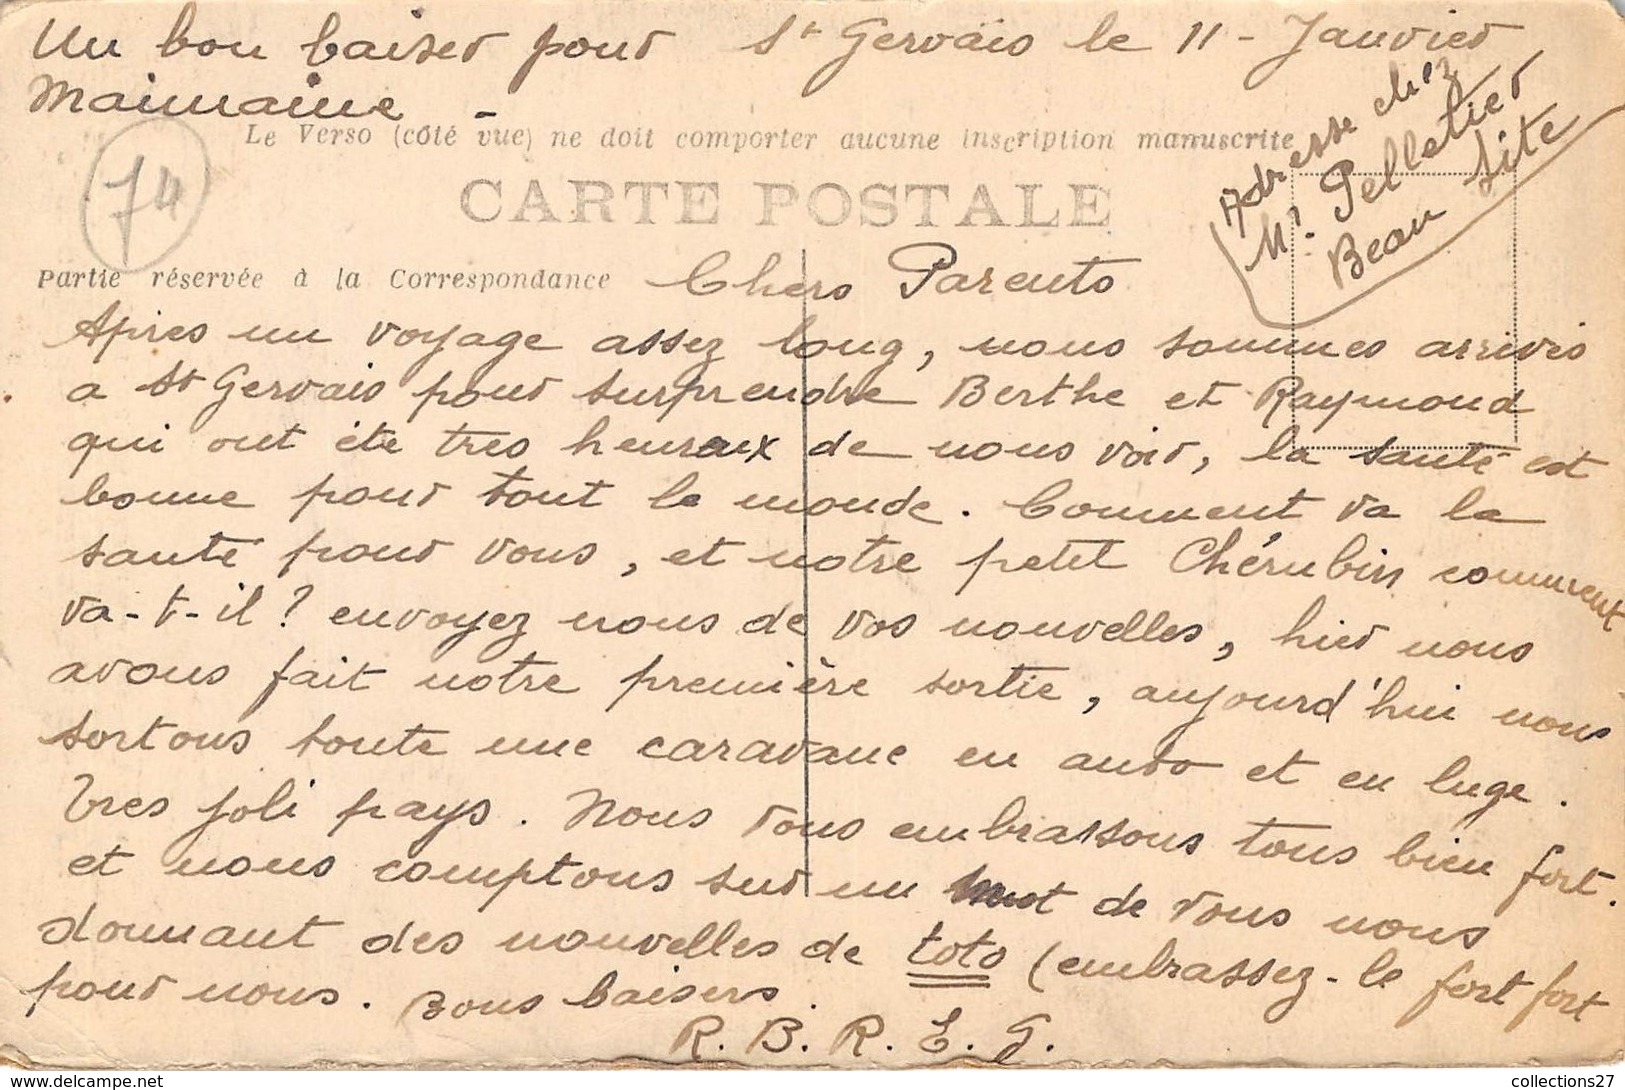 Un bon baiser pour
Maimaine -
St Gervais le 11 - Janvier
Adresse chez
Mr. Pelletier
Beau Site
74
Le Verso (côté vue) ne doit comporter aucune inscription manuscrite
CARTE POSTALE
Partie réservée à la Correspondance
Chers Parents
Apres un voyage assez long, nous sommes arrivés
a St Gervais pour surprendre Berthe et Raymond
qui ont été tres heuraux de nous voir, la santé est
bonne pour tout le monde. Comment va la
santé pour vous, et notre petit Chérubin comment
va-t-il? envoyez nous de vos nouvelles, hier nous
avons fait notre première sortie, aujourd'hui nous
sortons toute une caravane en auto et en luge.
Tres joli pays. Nous vous embrassons tous bien fort.
et nous comptons sur un mot de vous nous
donnant des nouvelles de toto (embrassez-le fort fort
pour nous. Bons baisers.
R. B. R. E. G.
collections27